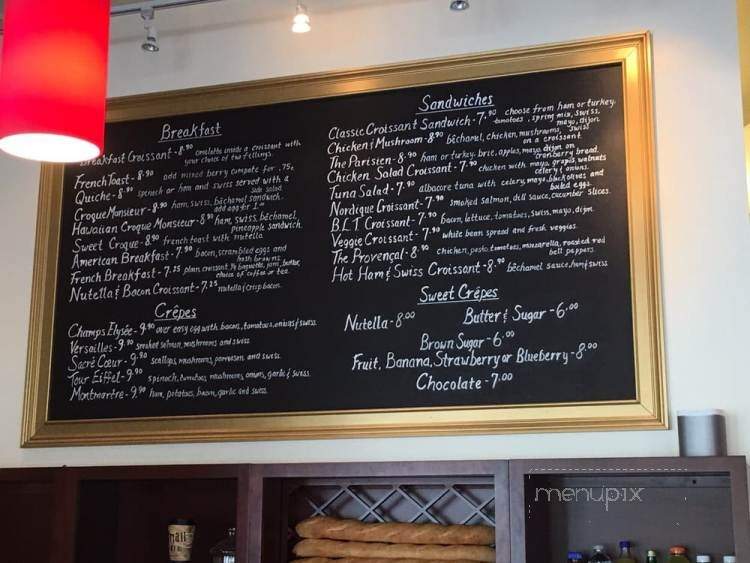 Breakfast
Breakfast Croissant - 8.90 omelette inside a croissant with
your choice of two fillings.
French Toast - 8.90 add mixed berry compote for .75¢
Quiche - 8.90 spinach or ham and swiss served with a
side salad
Croque Monsieur - 8.90 ham, swiss, béchamel sandwich.
add egg for 1.00
Hawaiian Croque Monsieur - 8.90 ham, swiss, béchamel,
pineapple sandwich.
Sweet Croque - 8.90 french toast with nutella
American Breakfast - 7.90 bacon, scrambled eggs and
hash browns.
French Breakfast - 7.25 plain croissant, ½ baguette, jam, butter,
choice of coffee or tea.
Nutella & Bacon Croissant - 7.25 nutella & crisp bacon.
Crêpes
Champs Elysée - 9.90 over easy egg with bacon, tomatoes, onions & swiss.
Versailles - 9.90 smoked salmon, mushrooms and swiss.
Sacré Cœur - 9.90 scallops, mushrooms, parmesan and swiss.
Tour Eiffel - 9.90 spinach, tomatoes, mushrooms, onions, garlic & swiss.
Montmartre - 9.90 ham, potatoes, bacon, garlic and swiss.
Sandwiches
Classic Croissant Sandwich - 7.90 choose from ham or turkey.
tomatoes, spring mix, swiss,
mayo, dijon
Chicken & Mushroom - 8.90 béchamel, chicken, mushrooms, swiss
on a croissant.
The Parisien - 8.90 ham or turkey, brie, apples, mayo, dijon on
cranberry bread.
Chicken Salad Croissant - 7.90 chicken with mayo, grapes, walnuts
celery & onions.
Tuna Salad - 7.90 albacore tuna with celery, mayo, black olives and
boiled eggs.
Nordique Croissant - 7.90 smoked salmon, dill sauce, cucumber slices.
B.L.T Croissant - 7.90 bacon, lettuce, tomatoes, swiss, mayo, dijon.
Veggie Croissant - 7.90 white bean spread and fresh veggies.
The Provençal - 8.90 chicken, pesto, tomatoes, mozzarella, roasted red
bell peppers.
Hot Ham & Swiss Croissant - 8.90 béchamel sauce, ham & swiss
Sweet Crêpes
Nutella - 8.00 Butter & Sugar - 6.00
Brown Sugar - 6.00
Fruit, Banana, Strawberry or Blueberry - 8.00
Chocolate - 7.00
menupix